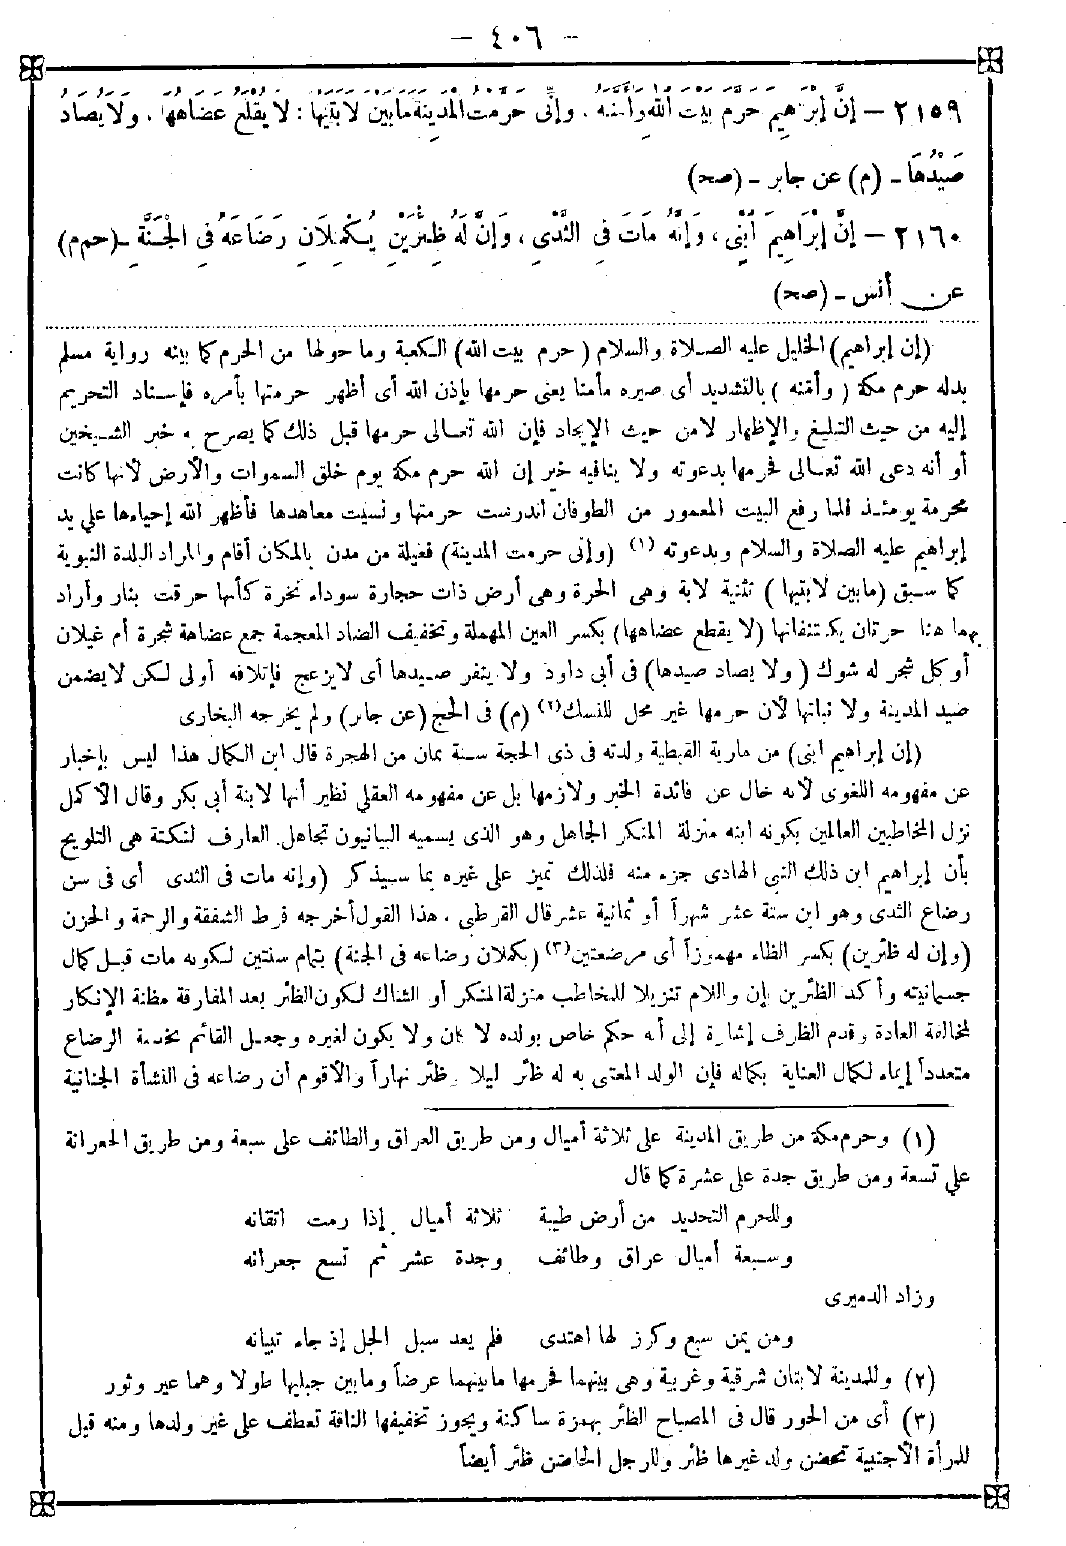 - ٤٠٦ -
٢١٥٩ - إِنَّ إِبْرَاهِيمَ حَرَّمَ بَيْتَ اللهِ وَأَمَّنَهُ ، وَإِنِّى حَرَّمْتُ الْمَدِينَةَ مَابَيْنَ لَابَتَيْهَا : لَا يُقْلَعُ عَضَاهُهَا ، وَلَا يُصَادُ
صَيْدُهَا - (م) عن جابر - (صح)
٢١٦٠ - إِنَّ إِبْرَاهِيمَ ابْنِى ، وَإِنَّهُ مَاتَ فِى الثَّدْىِ ، وَإِنَّ لَهُ ظِئْرَيْنِ يُكْمِلَانِ رَضَاعَهُ فِى الْجَنَّةِ - (حم م)
عن أنس - (صح)
(إن إبراهيم) الخليل عليه الصلاة والسلام (حرم بيت الله) الكعبة وما حولها من الحرم كما بينه رواية مسلم
بدله حرم مكة (وأمنه) بالتشديد أى صيره مأمنا يعنى حرمها بإذن الله أى أظهر حرمتها بأمره فإسناد التحريم
إليه من حيث التبليغ والإظهار لا من حيث الإيجاد فإن الله تعالى حرمها قبل ذلك كما يصرح به خبر الشيخين
أو أنه دعى الله تعالى فحرمها بدعوته ولا ينافيه خبر إن الله حرم مكة يوم خلق السموات والأرض لأنها كانت
محرمة يومئذ فلما رفع البيت المعمور من الطوفان اندرست حرمتها ونسيت معاهدها فأظهر الله إحياءها على يد
إبراهيم عليه الصلاة والسلام وبدعوته (١) (وإنى حرمت المدينة) فعيلة من مدن بالمكان أقام والمراد البلدة النبوية
كما سبق (مابين لابتيها) تثنية لابة وهى الحرة وهى أرض ذات حجارة سوداء نخرة كأنها حرقت بنار وأراد
بهما هنا حرتان يكتنفانها (لا يقطع عضاهها) بكسر العين المهملة وتخفيف الضاد المعجمة جمع عضاهة شجرة أم غيلان
أو كل شجر له شوك (ولا يصاد صيدها) فى أبى داود ولا ينفر صيدها أى لا يزعج فإتلافه أولى لكن لا يضمن
صيد المدينة ولا نباتها لأن حرمها غير محل للنسك(٢) (م) فى الحج (عن جابر) ولم يخرجه البخارى
(إن إبراهيم ابنى) من مارية القبطية ولدته فى ذى الحجة سنة ثمان من الهجرة قال ابن الكمال هذا ليس بإخبار
عن مفهومه اللغوى لأنه خال عن فائدة الخبر ولازمها بل عن مفهومه العقلى نظير أنها لابنة أبى بكر وقال الأكمل
نزل المخاطبين العالمين بكونه ابنه منزلة المنكر الجاهل وهو الذى يسميه البيانيون تجاهل العارف لنكتة هى التلويح
بأن إبراهيم ابن ذلك النبى الهادى جزء منه فلذلك تميز على غيره بما سيذكر (وإنه مات فى الثدى) أى فى سن
رضاع الثدى وهو ابن ستة عشر شهراً أو ثمانية عشر قال القرطبى . هذا القول أخرجه فرط الشفقة والرحمة والحزن
(وإن له ظئرين) بكسر الظاء مهموزاً أى مرضعتين(٣) (يكملان رضاعه فى الجنة) بتمام سنتين لكونه مات قبل كمال
جسمانيته وأكد الظئرين بإن واللام تنزيلا للمخاطب منزلة المنكر أو الشاك لكون الظئر بعد المفارقة مظنة الإنكار
لمخالفة العادة وقدم الظرف إشارة إلى أنه حكم خاص بولده لا كان ولا يكون لغيره وجعل القائم بخدمة الرضاع
متعدداً إيماء لكمال العناية بكماله فإن الولد المعتنى به له ظئر ليلا وظئر نهاراً والأقوم أن رضاعه فى النشأة الجنانية
(١) وحرم مكة من طريق المدينة على ثلاثة أميال ومن طريق العراق والطائف على سبعة ومن طريق الجعرانة
على تسعة ومن طريق جدة على عشرة كما قال
وللحرم التحديد من أرض طيبة ثلاثة أميال إذا رمت اتقانه
وسبعة أميال عراق وطائف وجدة عشر ثم تسع جعرانه
وزاد الدميرى
ومن يمن سبع وكرز لها اهتدى فلم يعد سبل الحل إذ جاء تبيانه
(٢) وللمدينة لابتان شرقية وغربية وهى بينهما فحرمها ما بينهما عرضاً وما بين جبليها طولا وهما عير وثور
(٣) أى من الحور قال فى المصباح الظئر بهمزة ساكنة ويجوز تخفيفها الناقة تعطف على غير ولدها ومنه قيل
للمرأة الأجنبية تحضن ولد غيرها ظئر وللرجل الحاضن ظئر أيضاً